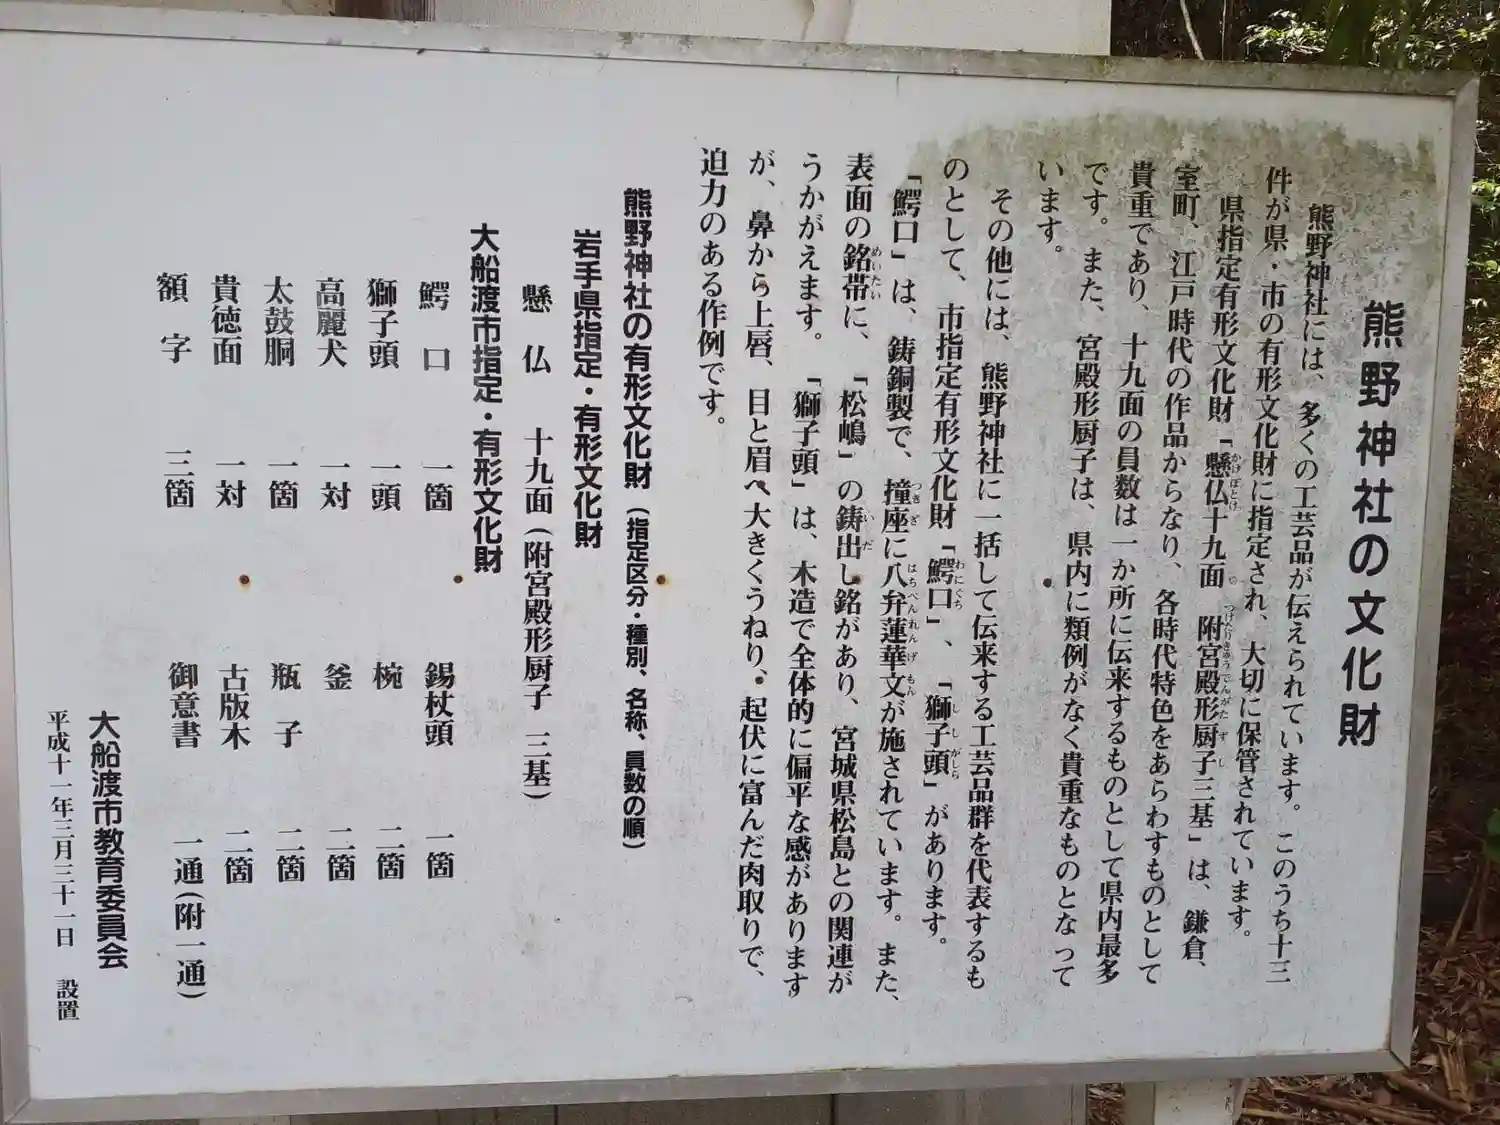 熊野神社の文化財
熊野神社には、多くの工芸品が伝えられています。このうち十三
件が県・市の有形文化財に指定され、大切に保管されています。
県指定有形文化財「懸仏十九面 附宮殿形厨子三基」は、鎌倉、
室町、江戸時代の作品からなり、各時代特色をあらわすものとして
貴重であり、十九面の員数は一か所に伝来するものとして県内最多
です。また、宮殿形厨子は、県内に類例がなく貴重なものとなって
います。
その他には、熊野神社に一括して伝来する工芸品群を代表するも
のとして、市指定有形文化財「鰐口」、「獅子頭」があります。
「鰐口」は、鋳銅製で、撞座に八弁蓮華文が施されています。また、
表面の銘帯に、「松嶋」の鋳出し銘があり、宮城県松島との関連が
うかがえます。「獅子頭」は、木造で全体的に偏平な感があります
が、鼻から上唇、目と眉へ大きくうねり、起伏に富んだ肉取りで、
迫力のある作例です。
熊野神社の有形文化財(指定区分・種別、名称、員数の順)
岩手県指定・有形文化財
懸仏 十九面(附宮殿形厨子 三基)
大船渡市指定・有形文化財
鰐口 一箇 錫杖頭 一箇
獅子頭 一頭 椀 二箇
高麗犬 一対 釜 二箇
太鼓胴 一箇 瓶子 二箇
貴徳面 一対 古版木 二箇
額字 三箇 御意書 一通(附一通)
大船渡市教育委員会
平成十一年三月三十一日 設置